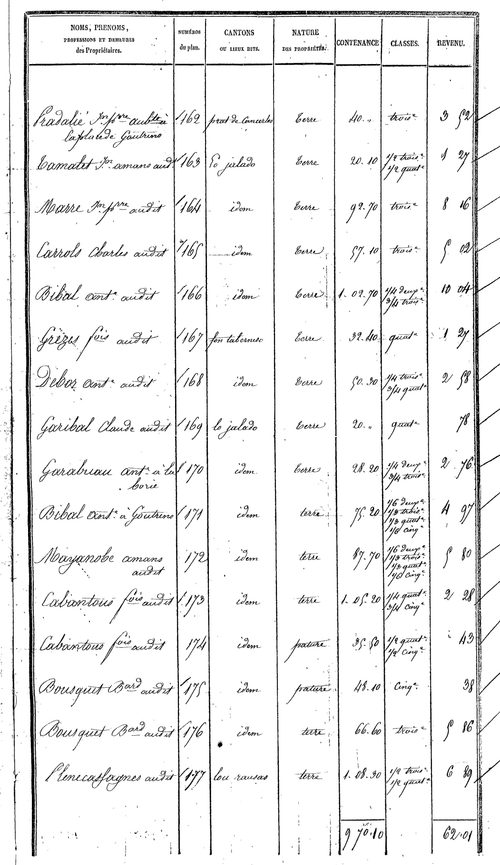 NOMS, PRENOMS, PROFESSIONS ET DEMEURES des Propriétaires. NUMÉROS du plan. CANTONS OU LIEUX DITS. NATURE DES PROPRIÉTÉS. CONTENANCE. CLASSES. REVENU.
Pradalié Jn pre 162 terre 40 „ troise 3 52
la place de Goutrens
Ramalet Jn amans audt 163 Lo jalado terre 20.10 1/2 troise 1/2 quate 1 27
Marre Jn pre audit 164 idem terre 92.70 troise 8 16
Carrols Charles audit 165 idem terre 57.10 troise 5 02
Bibal ante audit 166 idem terre 1.02.70 1/4 deuxe 3/4 troise 10 04
Grèzes fois audit 167 terre 32.40 quate 1 27
Débox ante audit 168 idem terre 50.30 1/4 troise 3/4 quate 2 58
Garibal Claude audit 169 lo jalado terre 20 „ quate 78
Garabuau ante à la borie 170 idem terre 28.20 1/4 deuxe 3/4 troise 2 76
Bibal ante à Goutrens 171 idem terre 75.20 1/6 deuxe 1/3 troise 1/3 quate 1/6 cinqe 4 97
Mayanobe amans audit 172 idem terre 87.70 1/6 deuxe 1/3 troise 1/3 quate 1/6 cinqe 5 80
Cabantous fois audit 173 idem terre 1.05.20 1/4 quate 3/4 cinqe 2 28
Cabantous fois audit 174 idem pature 35.50 1/2 quate 1/2 cinqe 43
Bousquet Bard audit 175 idem pature 48.10 Cinqe 38
Bousquet Bard audit 176 idem terre 66.60 troise 5 86
Plenecassagnes audit 177 lou rausas terre 1.08.30 1/2 troise 1/2 quate 6 89
9 70.10 62.01